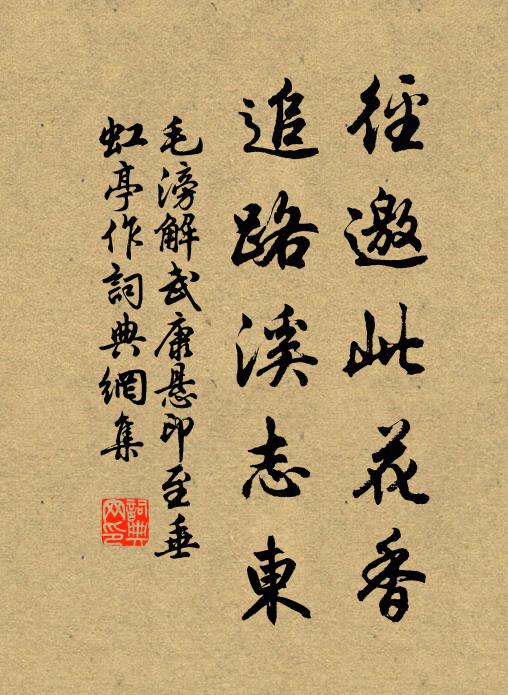 徑邀此花香
追路溪志東
毛滂解武康懸印至垂
虹亭作詞典網集
詞典
网印